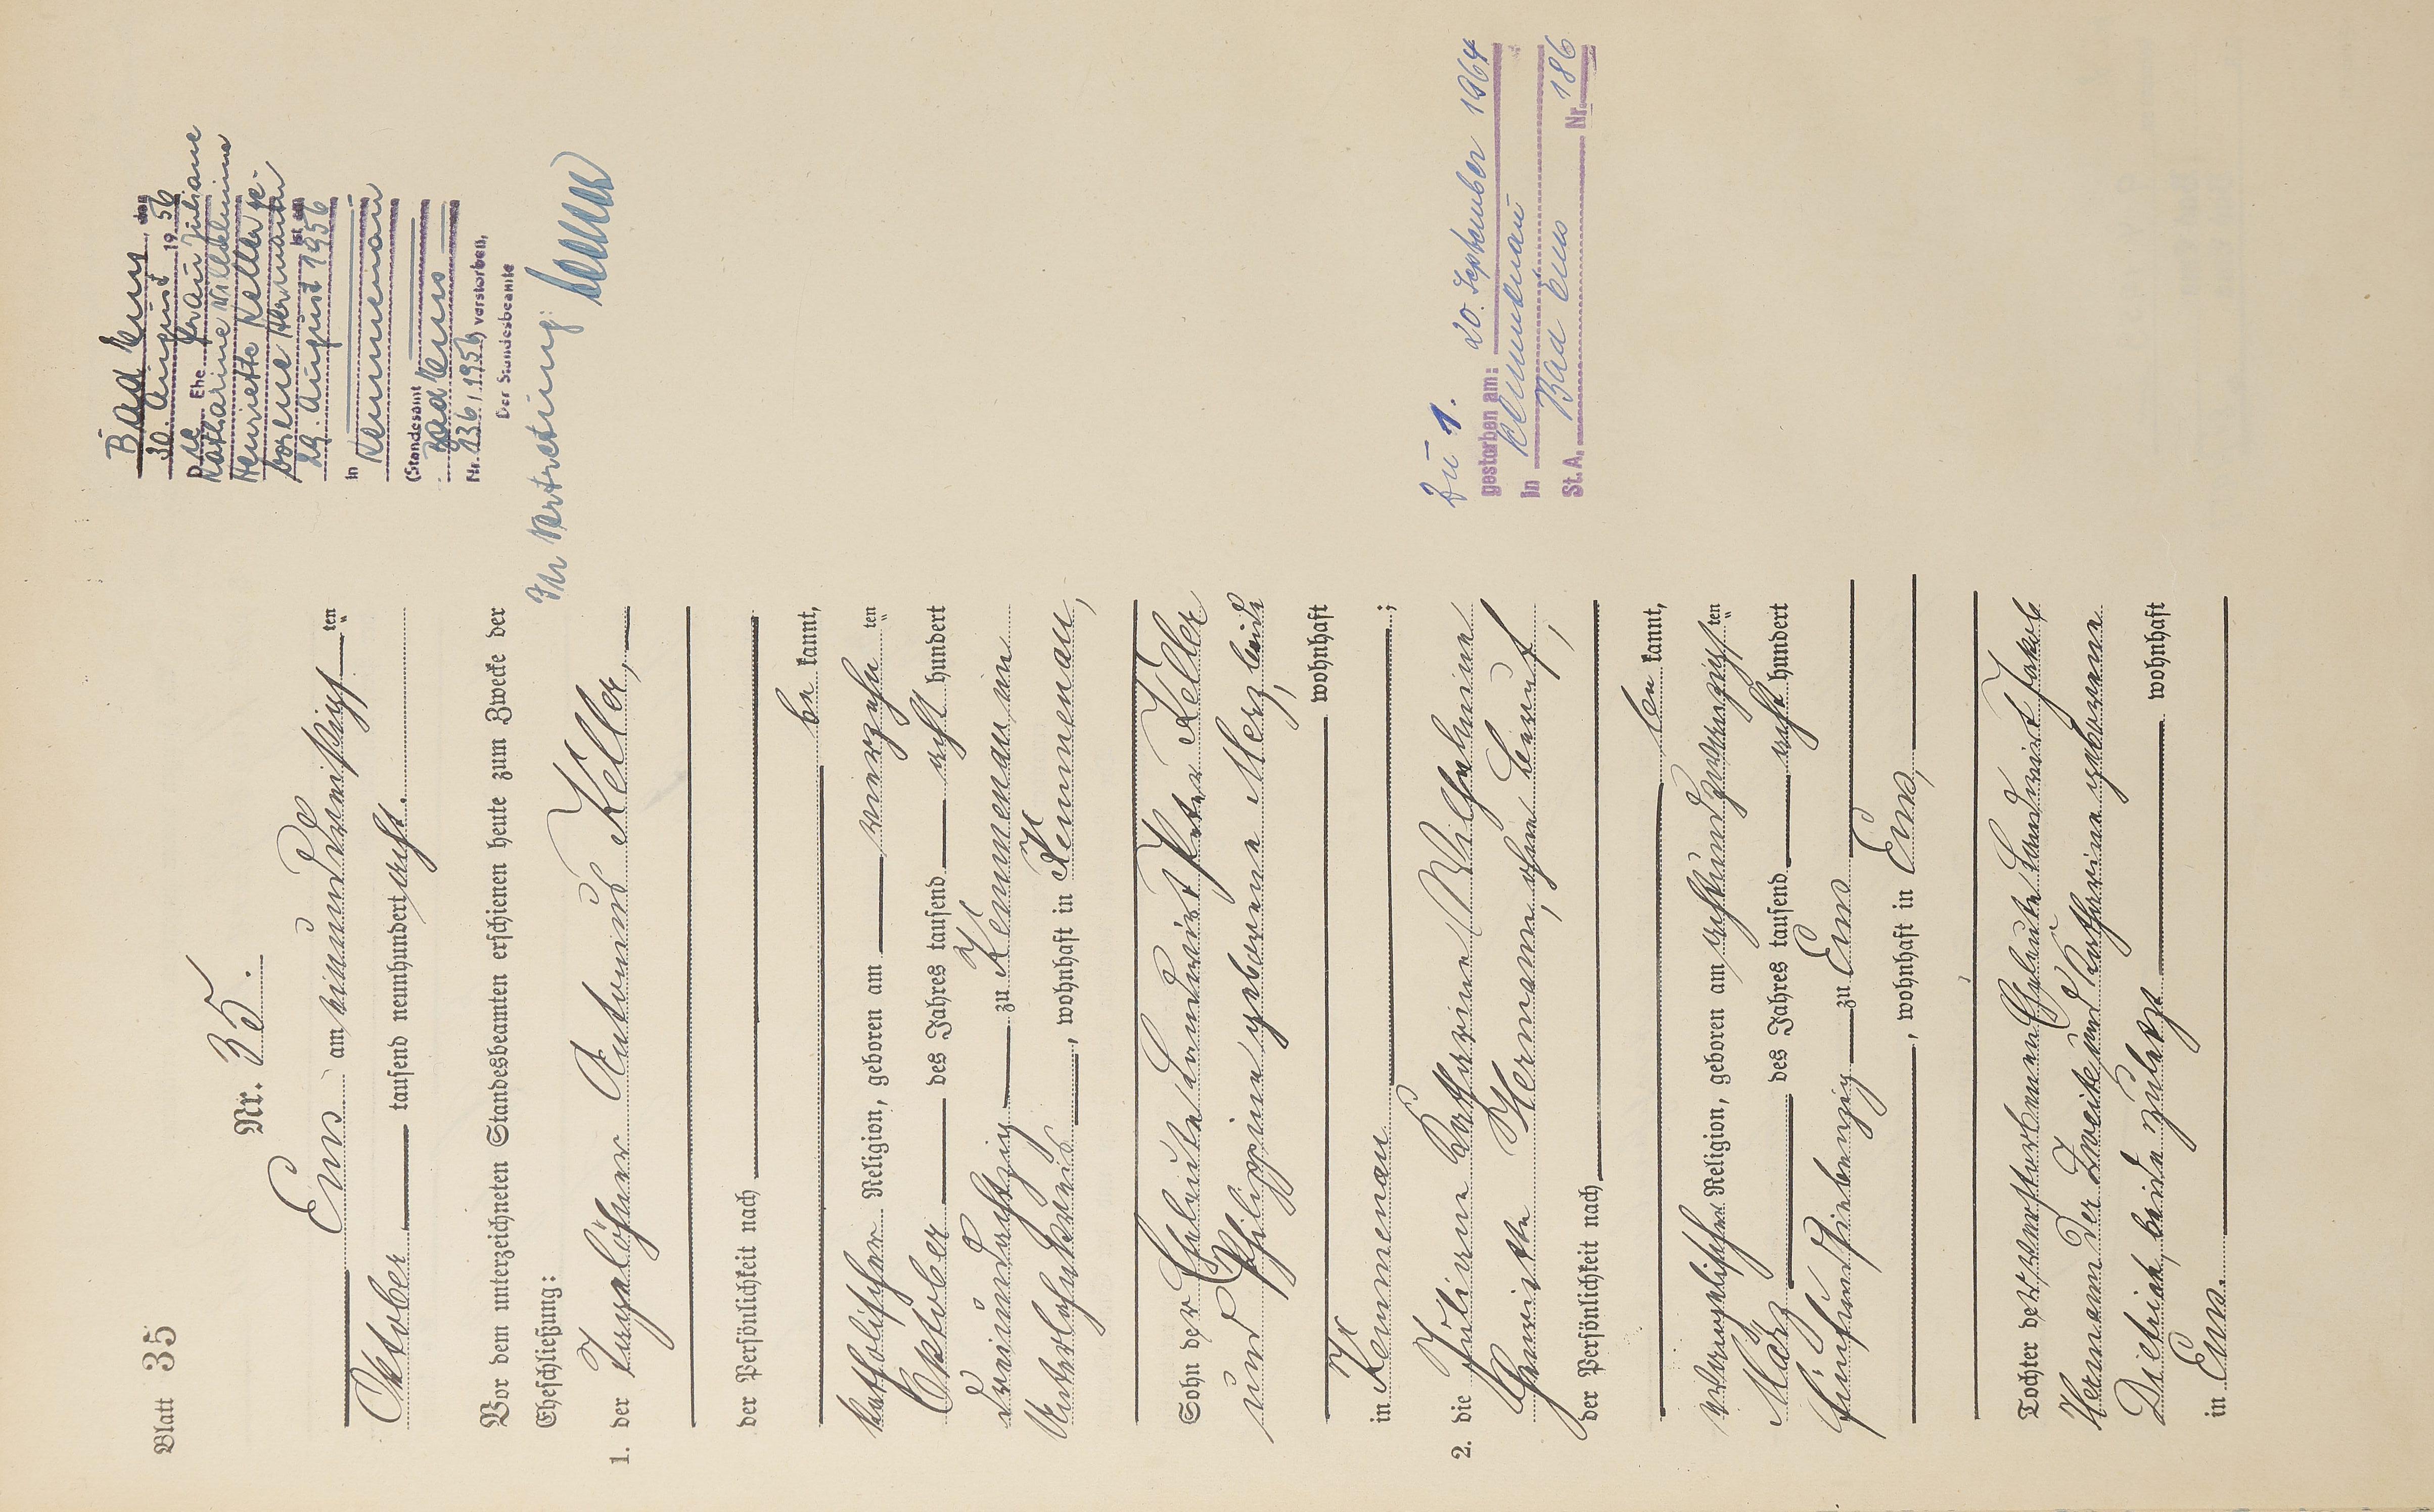 Blatt 35
Nr. 35.
Ems am einunddreißigsten
Oktober tausend neunhundert acht.
Vor dem unterzeichneten Standesbeamten erschienen heute zum Zwecke der
Eheschließung:
1. der Tagelöhner Antonius Keller,
der Persönlichkeit nach
be kannt,
katholischer Religion, geboren am vierzehnten
Oktober des Jahres tausend acht hundert
dreiundachtzig zu Kemmenau im
Unterlahnkreis, wohnhaft in Kemmenau,
Sohn der Eheleute Landwirt Peter Keller
und Philippine geborene Merz, beide
wohnhaft
in Kemmenau;
2. die Juliane Katharine Wilhelmine
Henriette Hermann, ohne Beruf,
der Persönlichkeit nach
be kannt,
evangelischer Religion, geboren am achtundzwanzigsten
März des Jahres tausend acht hundert
fünfundsiebenzig zu Ems
, wohnhaft in Ems,
Tochter der verstorbenen Eheleute Landwirt Jakob
Hermann der Zweite und Katharine geborene
Dietrich, beide zuletzt wohnhaft
in Ems.
Bad Ems, den
30. August 1956
Die Ehefrau Juliane
Katharine Wilhelmine
Henriette Keller ge-
borene Hermann
ist am
29. August 1956
in Kemmenau
(Standesamt
Bad Ems
Nr. 136/1956) verstorben,
Der Standesbeamte
In Vertretung:
Zu 1.
gestorben am: 20. September 1964
in Kemmenau
St. A. Bad Ems Nr. 186